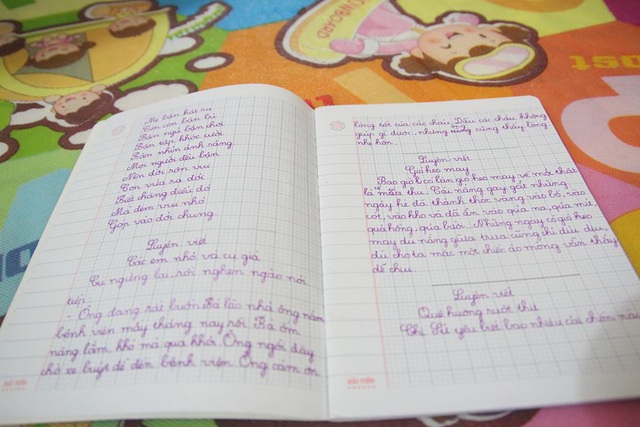 Mẹ bận hát ru
Còn con bận bú
Bận ngủ bận chơi
Bận tập khóc cười
Bận nhìn ánh sáng.
Mọi người đều bận
Nên đời rộn vui
Con vừa ra đời
Biết chăng điều đó
Mà đem vui nhỏ
Góp vào đời chung.
Luyện viết
Các em nhỏ và cụ già
Cụ ngừng lại, rồi nghẹn ngào nói
tiếp
- Ông đang rất buồn. Bà lão nhà ông nằm
bệnh viện mấy tháng nay rồi. Bà ốm
nặng lắm, khó mà qua khỏi. Ông ngồi đây
chờ xe buýt để đến bệnh viện. Ông cảm ơn
lòng tốt của các cháu. Dẫu các cháu không
giúp gì được, nhưng ông cũng thấy lòng
nhẹ hơn.
Luyện viết
Gió heo may
Bao giờ có làn gió heo may về mới thật
là mùa thu. Cái nắng gay gắt những
ngày hè đã thành thóc vàng vào bồ, vào
cót, vào kho và đã ẩn vào quả na, quả mít,
quả hồng, quả bưởi... Những ngày có gió heo
may dù nắng giữa trưa cũng chỉ dìu dịu,
đủ cho ta mặc một chiếc áo mỏng vẫn thấy
dễ chịu.
Luyện viết
Quê hương ruột thịt
Chị Sứ yêu biết bao nhiêu cái chốn này